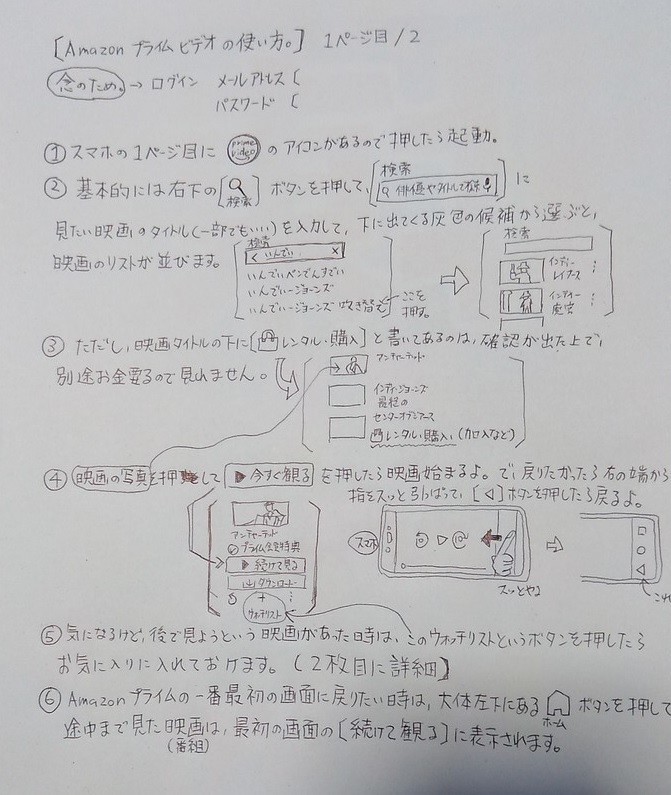 [Amazon プライム ビデオ の使い方。] 1ページ目 / 2
念のため。→ ログイン メールアドレス (
パスワード (
① スマホの1ページ目に prime video のアイコンがあるので押したら起動。
② 基本的には右下の[検索]ボタンを押して、[検索 俳優やタイトルで検索]に
見たい映画のタイトル(一部でもいい)を入力して、下に出てくる灰色の候補から選ぶと、
映画のリストが並びます。
検索
< いんでい X
いんでぃぺんでんすでい
いんでぃーじょーんず
いんでぃーじょーんず 吹き替え
ここを押す。
検索
インディーレイナース
インディー
③ ただし、映画タイトルの下に[レンタル・購入]と書いてあるのは、確認が出た上で、
別途お金要るので見れません。
アンチャーテッド
インディ・ジョーンズ
最後の
センターオブジアース
レンタル・購入 (加入など)
④ 映画の写真を押して ▶今すぐ観る を押したら映画始まるよ。で、戻りたかったら右の端から
指をスッと引っぱって、[◁]ボタンを押したら戻るよ。
アンチャーテッド
プライム会員特典
▶ 続けて見る
ダウンロード
+
ウォッチリスト
スマホ
スッとやる
⑤ 気になるけど、後で見ようという映画があった時は、このウォッチリストというボタンを押したら
お気に入りに入れておけます。(2枚目に詳細)
⑥ Amazonプライムの一番最初の画面に戻りたい時は、大体左下にある ホーム ボタンを押して
途中まで見た映画(番組)は、最初の画面の[続けて観る]に表示されます。